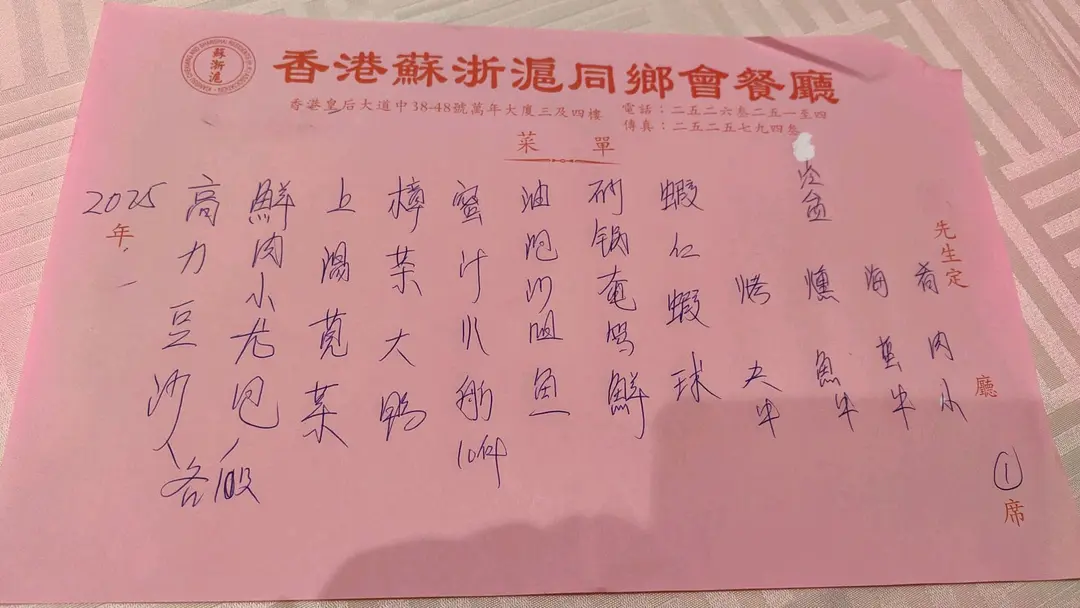 蘇浙滬
香港蘇浙滬同鄉會餐廳
香港皇后大道中38-48號萬年大廈三及四樓
電話：二五二六叁二五一至四
傳真：二五二五七九四叁
菜單
先生定
廳
①席
肴肉小
海蜇牛
燻魚牛
烤夫牛
蝦仁蝦球
砂锅奄鸡鮮
油泡沙咀魚
蜜汁火舫10件
樟茶大鸭
上湯莧菜
鮮肉小尨包
高力豆沙
各10份
2025年